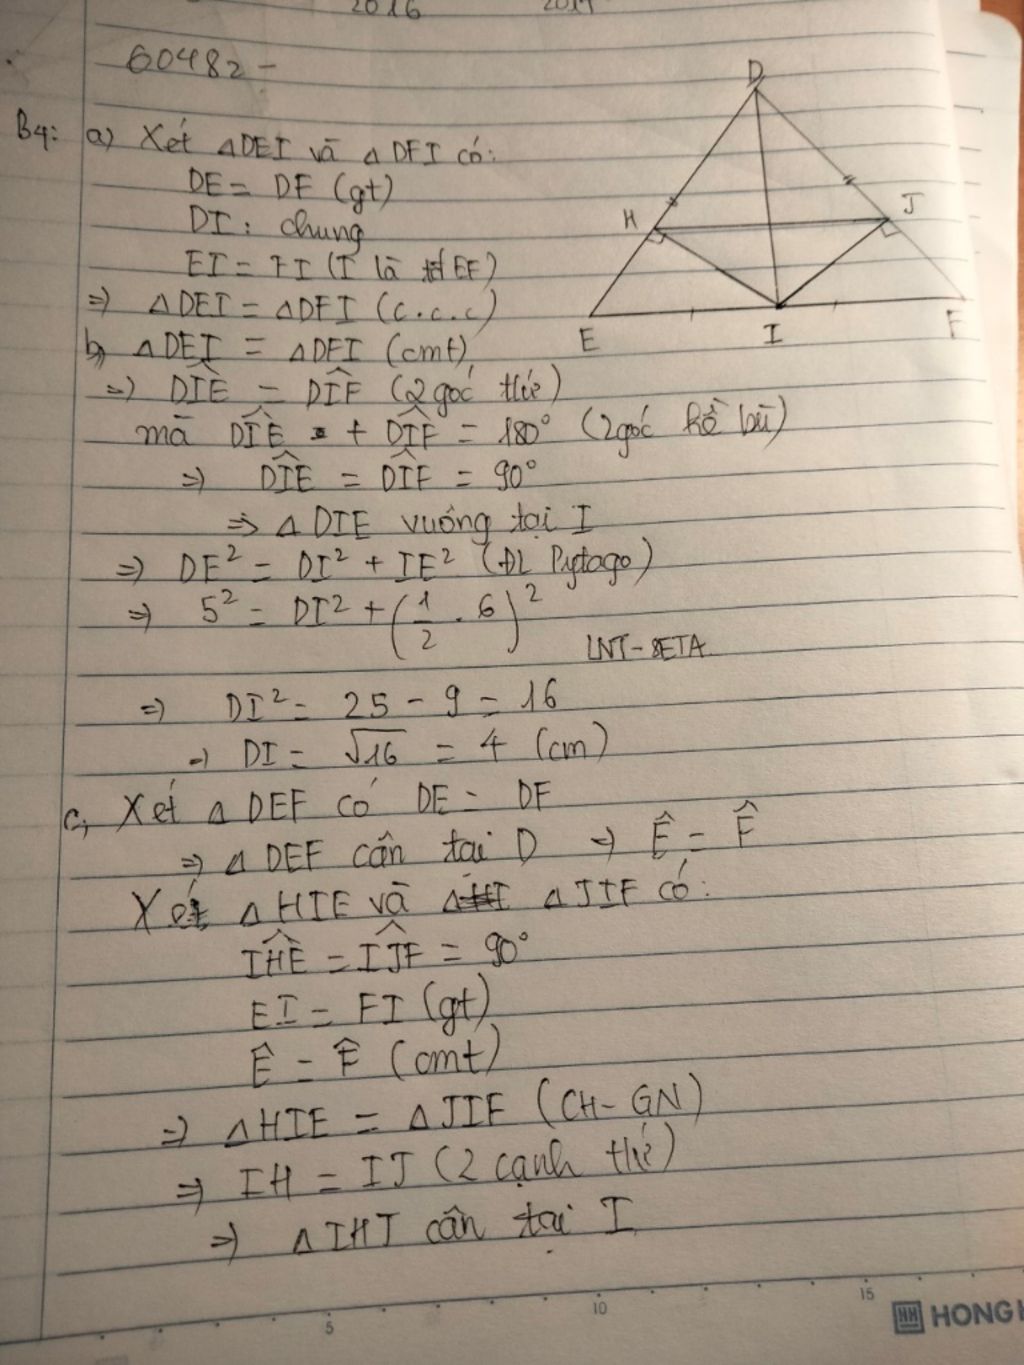 2016
60482 -
B4: a) Xét ΔDEI và ΔDFI có:
DE = DF (gt)
DI : chung
EI = FI (I là EF)
=> ΔDEI = ΔDFI (c.c.c)
b, ΔDEI = ΔDFI (cmt)
=> DÎE = DÎF (2 góc t/ứ)
mà DÎE + DÎF = 180° (2 góc kề bù)
=> DÎE = DÎF = 90°
=> ΔDIE vuông tại I
=> DE² = DI² + IE² (ĐL Pytago)
=> 5² = DI² + (1/2 . 6)²
LNT-BETA
=> DI² = 25 - 9 = 16
=> DI = √16 = 4 (cm)
c, Xét ΔDEF có DE = DF
=> ΔDEF cân tại D => Ê = F̂
Xét ΔHIE và ΔJIF có:
IĤE = IĴF = 90°
EI = FI (gt)
Ê = F̂ (cmt)
=> ΔHIE = ΔJIF (CH-GN)
=> IH = IJ (2 cạnh t/ứ)
=> ΔIHJ cân tại I
D
H
J
E
I
F
5
10
15
HH HONG